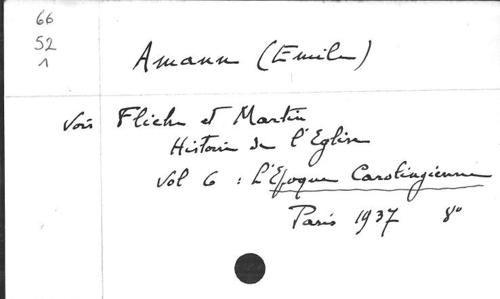 66
52
1
Amann (Emile)
Voir Fliche et Martin
Histoire de l'Eglise
Vol 6 : L'Epoque Carolingienne
Paris 1937 8°